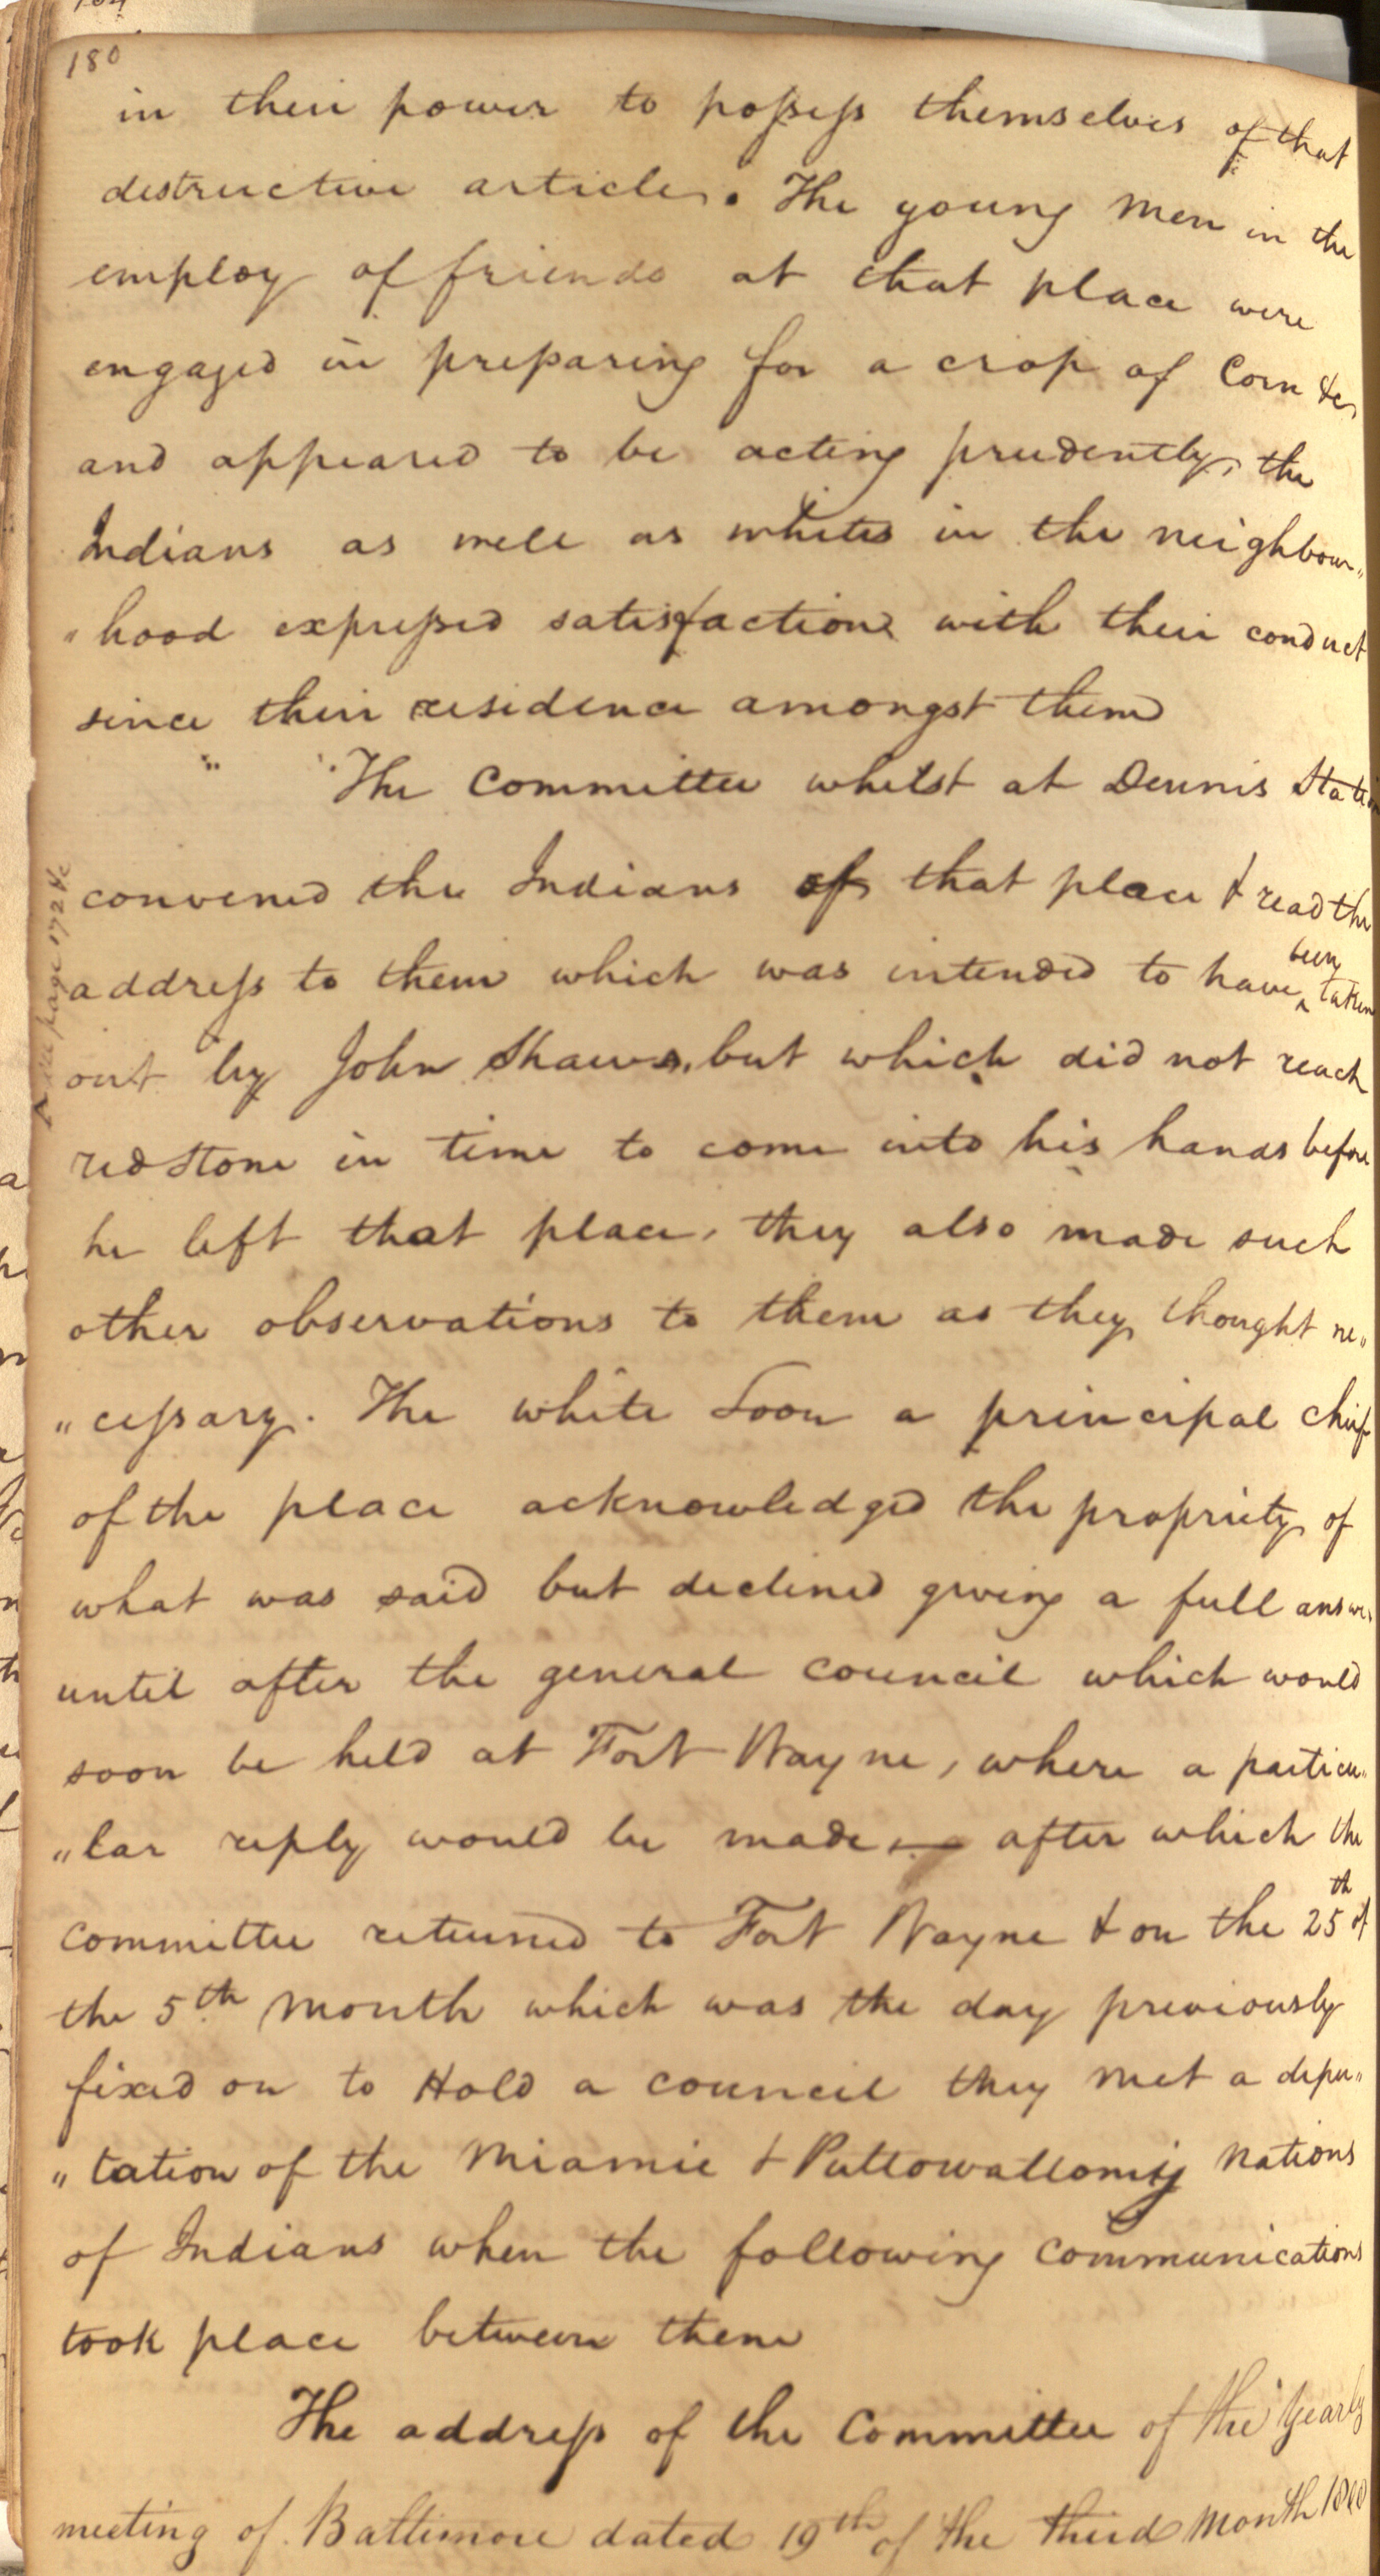 180
in their power to possess themselves of that
destructive article. The young men in the
employ of friends at that place were
engaged in preparing for a crop of Corn &c
and appeared to be acting prudently, the
Indians as well as whites in the neighbour„
„hood expressed satisfaction with their conduct
since their residence amongst them
The Committee whilst at Dennis Station
convened the Indians of that place & read the
address to them which was intended to have been taken
out by John Shaw, but which did not reach
red Stone in time to come into his hands before
he left that place, they also made such
other observations to them as they thought ne„
„cessary. The white Loon a principal chief
of the place acknowledged the propriety of
what was said but declined giving a full answer
until after the general council which would
soon be held at Fort Wayne, where a particu„
„lar reply would be made — after which the
committee returned to Fort Wayne & on the 25th of
the 5th month which was the day previously
fixed on to Hold a council they met a depu„
„tation of the Miamie & Puttowattomy Nations
of Indians when the following communications
took place between them
The address of the Committee of the Yearly
meeting of Baltimore dated 19th of the third month
page 172 &c